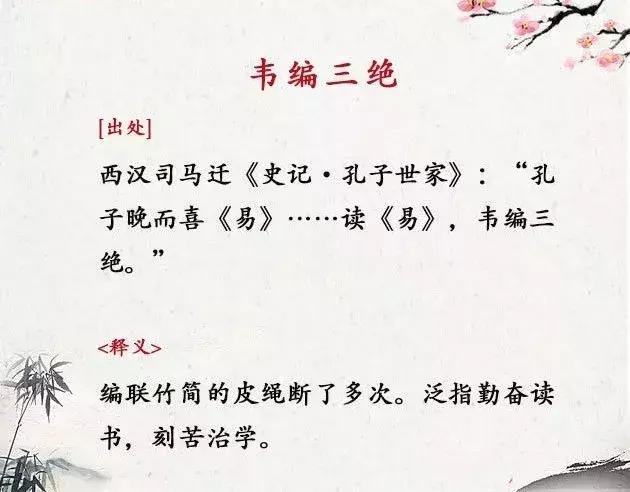 韦编三绝
[出处]
西汉司马迁《史记·孔子世家》：“孔
子晚而喜《易》……读《易》，韦编三
绝。”
<释义>
编联竹简的皮绳断了多次。泛指勤奋读
书，刻苦治学。